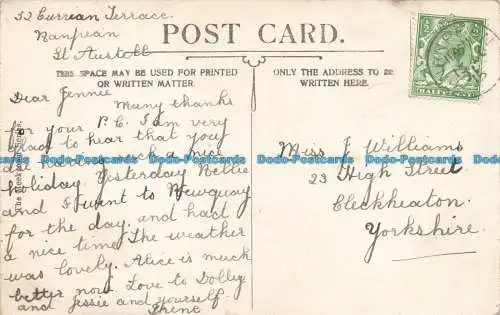 52 Currian Terrace.
Nanpean
St Austell
POST CARD.
THIS SPACE MAY BE USED FOR PRINTED
OR WRITTEN MATTER.
ONLY THE ADDRESS TO BE
WRITTEN HERE.
HALFPENNY
Dear Jennie
Many thanks
for your P.C. I am very
glad to hear that you
such a nice
holiday. Yesterday Nellie
and I went to Newquay
for the day. and had
a nice time. The weather
was lovely. Alice is much
better now. Love to Dolly
and Jessie and yourself.
Miss J Williams
23 High Street
Cleckheaton.
Yorkshire.
Dodo-Postcards Dodo-Postcards Dodo-Postcards Dodo-Postcards